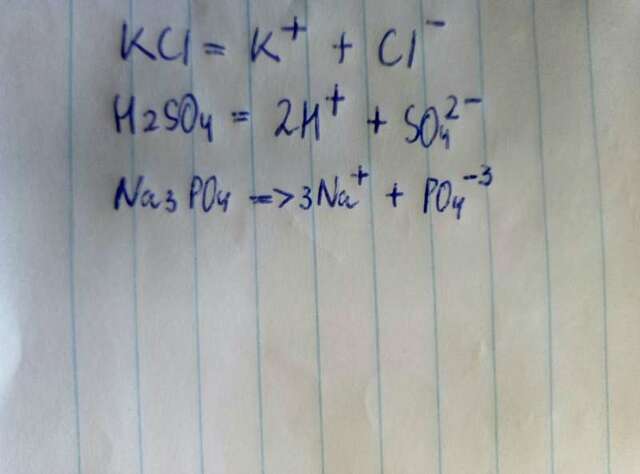 KCl = K⁺ + Cl⁻
H₂SO₄ = 2H⁺ + SO₄²⁻
Na₃PO₄ => 3Na⁺ + PO₄⁻³